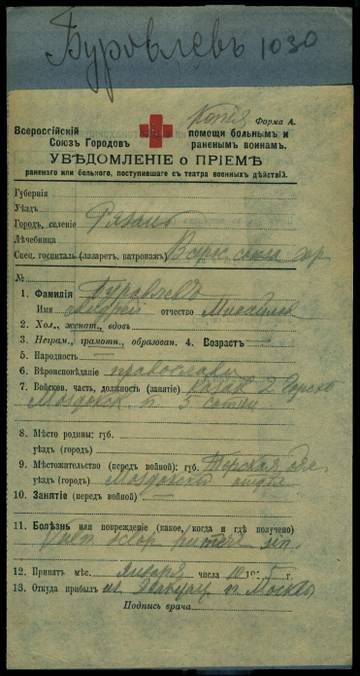 Буровлевъ 1030
Копiя Форма А.
Всероссiйскiй помощи больнымъ и
Союзъ Городовъ раненымъ воинамъ.
УВѢДОМЛЕНIЕ о ПРIЕМѢ
раненаго или больного, поступившаго съ театра военныхъ дѣйствiй.
Губернiя
Уѣздъ
Городъ, селенiе Рязань
Лѣчебница
Спец. госпиталь (лазаретъ, патронажъ) Всерос союза гор
№
1. Фамилiя Буровлевъ
Имя Андрей отчество Михайлов
2. Хол., женат., вдовъ
3. Неграм., грамотн., образован. 4. Возрастъ
5. Народность
6. Вѣроисповѣданiе православн
7. Войсков. часть, должность (занятiе) Казак 2 Горско
Моздокск. п 5 сотни
8. Мѣсто родины: губ.
уѣздъ (городъ)
9. Мѣстожительство (передъ войной): губ. Терская обл
уѣздъ (городъ) Моздокскiй отдѣл
10. Занятiе (передъ войной)
11. Болѣзнь или поврежденiе (какое, когда и гдѣ получено)
sin.
12. Принятъ мѣс. января числа 10 191 5 г.
13. Откуда прибылъ из эвакуац п. Москвы
Подпись врача